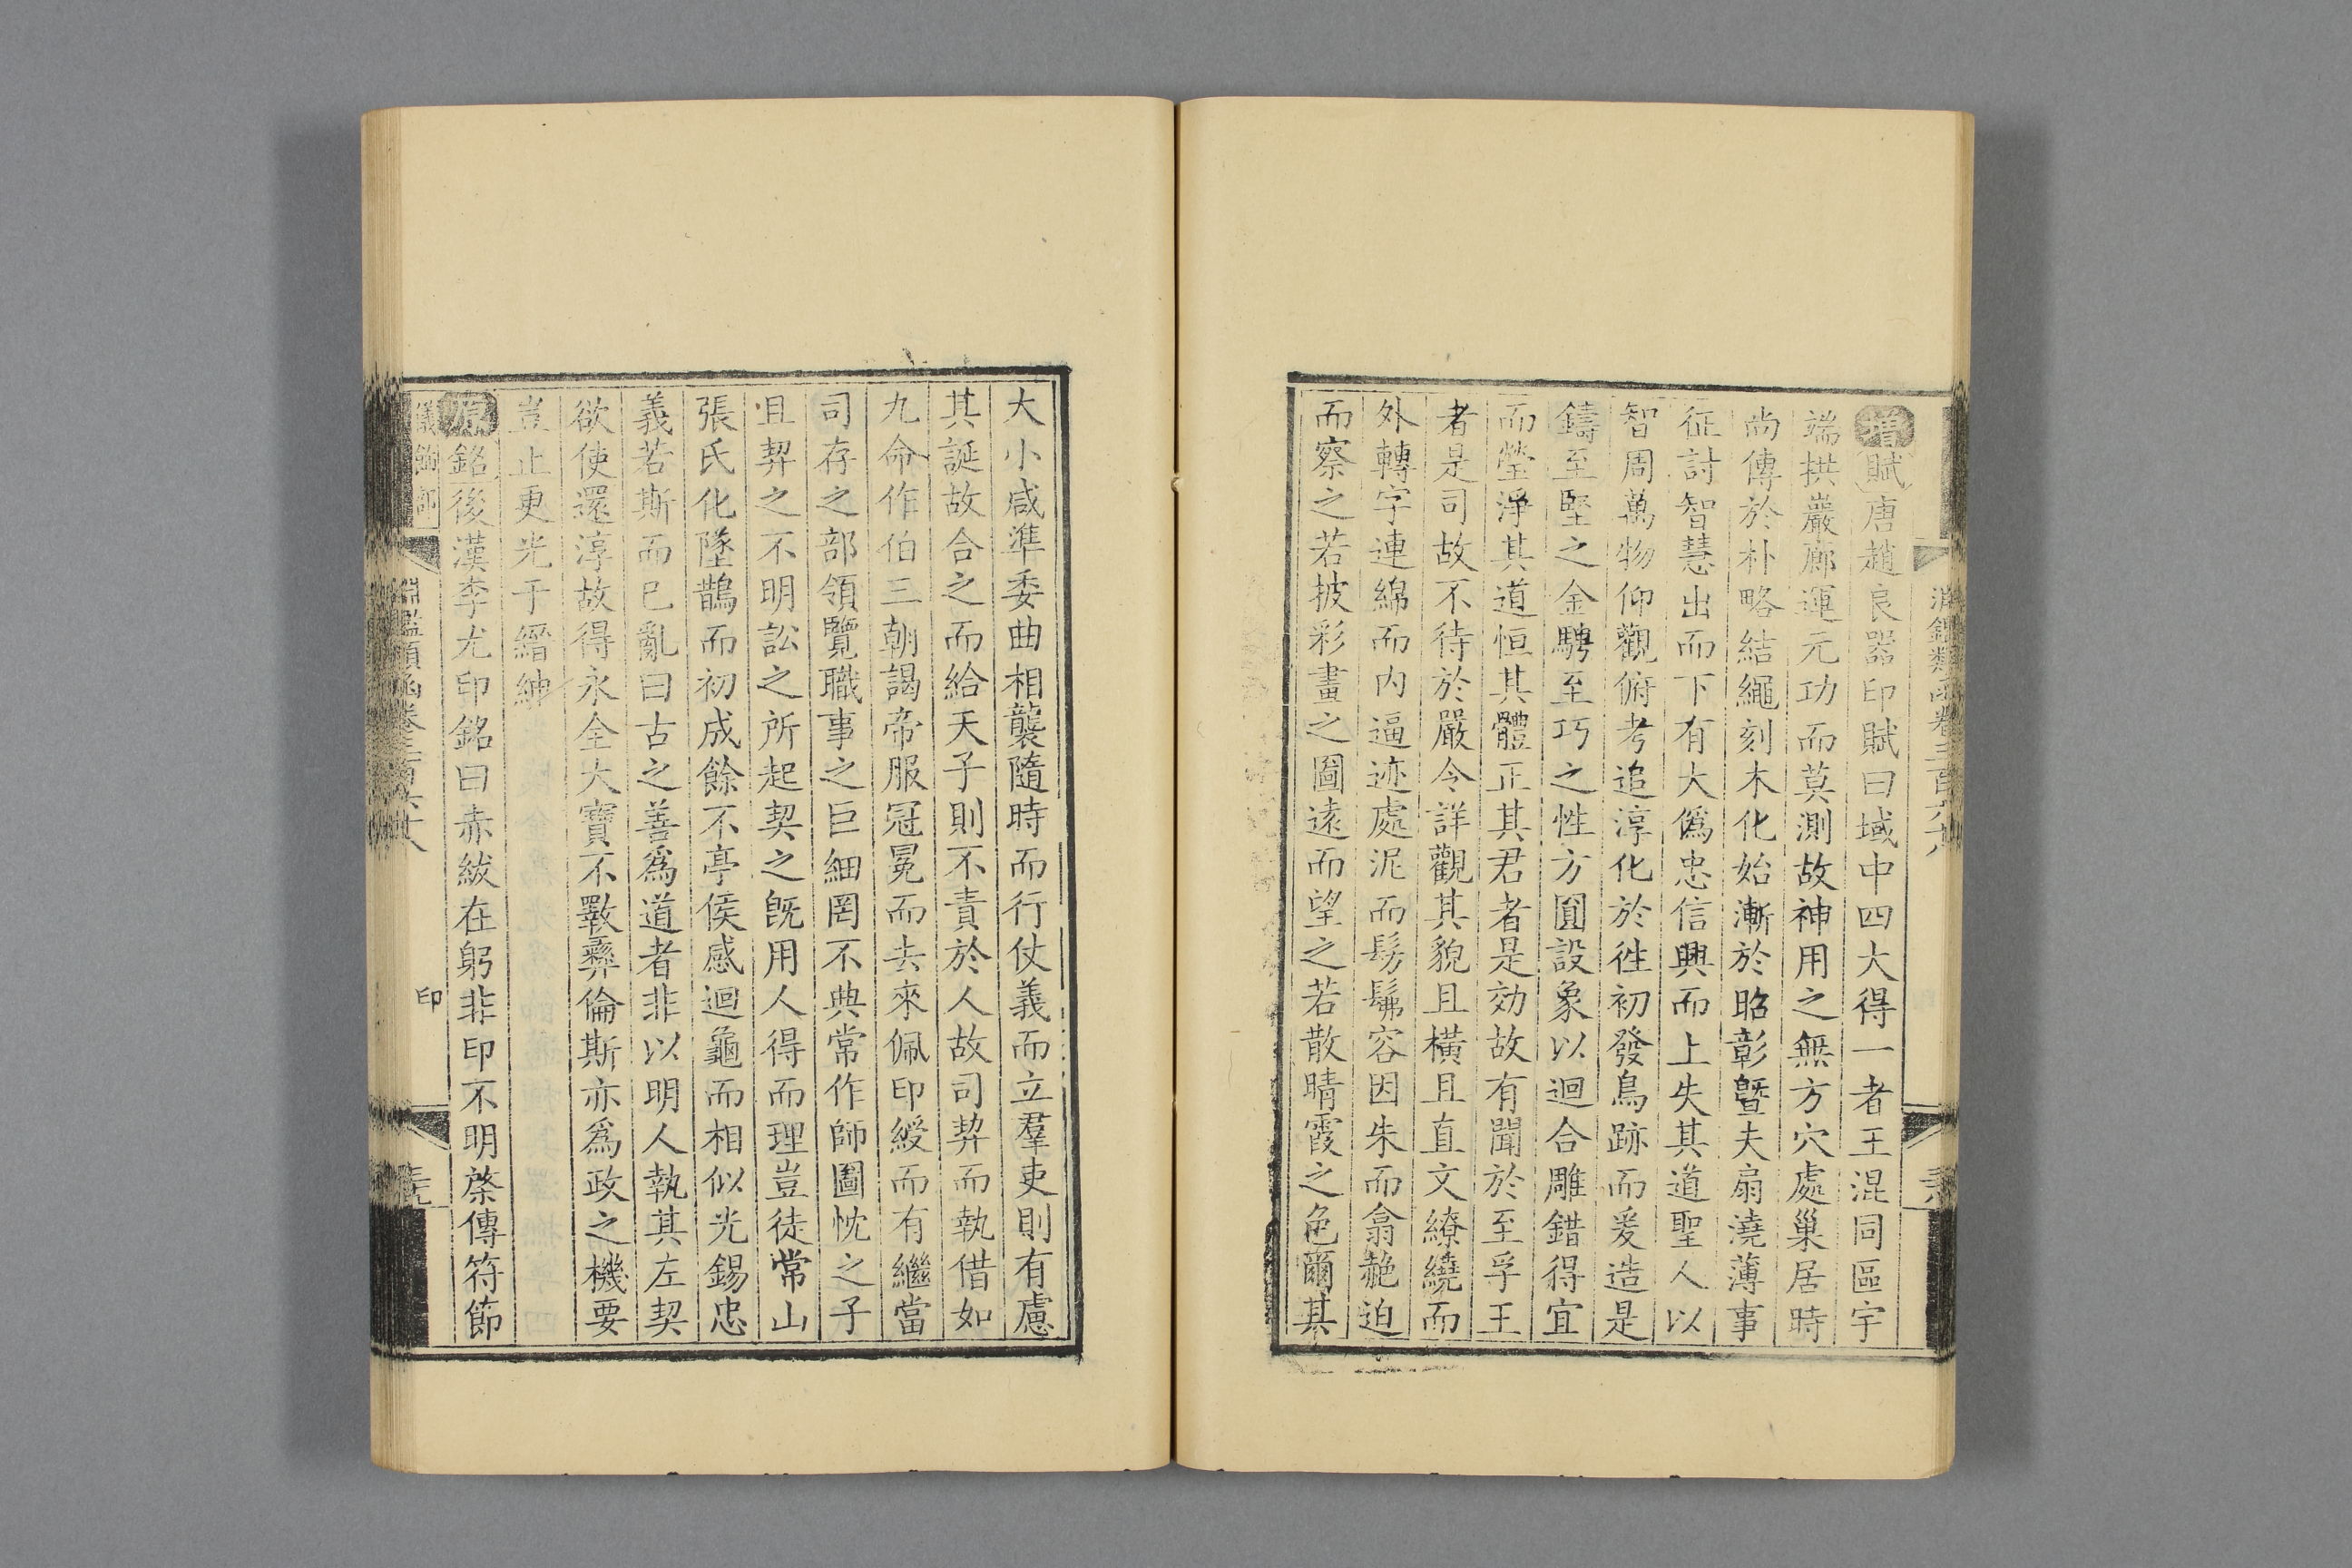 增賦唐趙良器印賦曰域中四大得一者王混同區宇
端拱巖廊運元功而莫測故神用之無方穴處巢居時
尚傳於朴略結繩刻木化始漸於昭彰曁夫扇澆薄事
征討智慧出而下有大僞忠信興而上失其道聖人以
智周萬物仰觀俯考追淳化於徃初發鳥跡而爰造是
鑄至堅之金騁至巧之性方圓設象以迴合雕錯得宜
而瑩淨其道恒其體正其君者是効故有聞於至孚王
者是司故不待於嚴令詳觀其貌且橫且直文繚繞而
外轉字連綿而内逼迹處泥而髣髴容因朱而翕赩迫
而察之若披彩畫之圖遠而望之若散晴霞之色爾其
淵鑑類函卷三百六十八
大小咸準委曲相襲隨時而行仗義而立羣吏則有慮
其誕故合之而給天子則不責於人故司契而執借如
九命作伯三朝謁帝服冠冕而去來佩印綬而有繼當
司存之部領覽職事之巨細罔不典常作師圖忱之子
咀契之不明訟之所起契之旣用人得而理豈徒常山
張氏化墜鵲而初成餘不亭侯感迴龜而相似光錫忠
義若斯而已亂曰古之善爲道者非以明人執其左契
欲使還淳故得永全大寶不斁彝倫斯亦爲政之機要
豈止更光于縉紳
原銘後漢李尤印銘曰赤紱在躬非印不明棨傳符節
儀飾部
淵鑑類函卷三百六十八
印